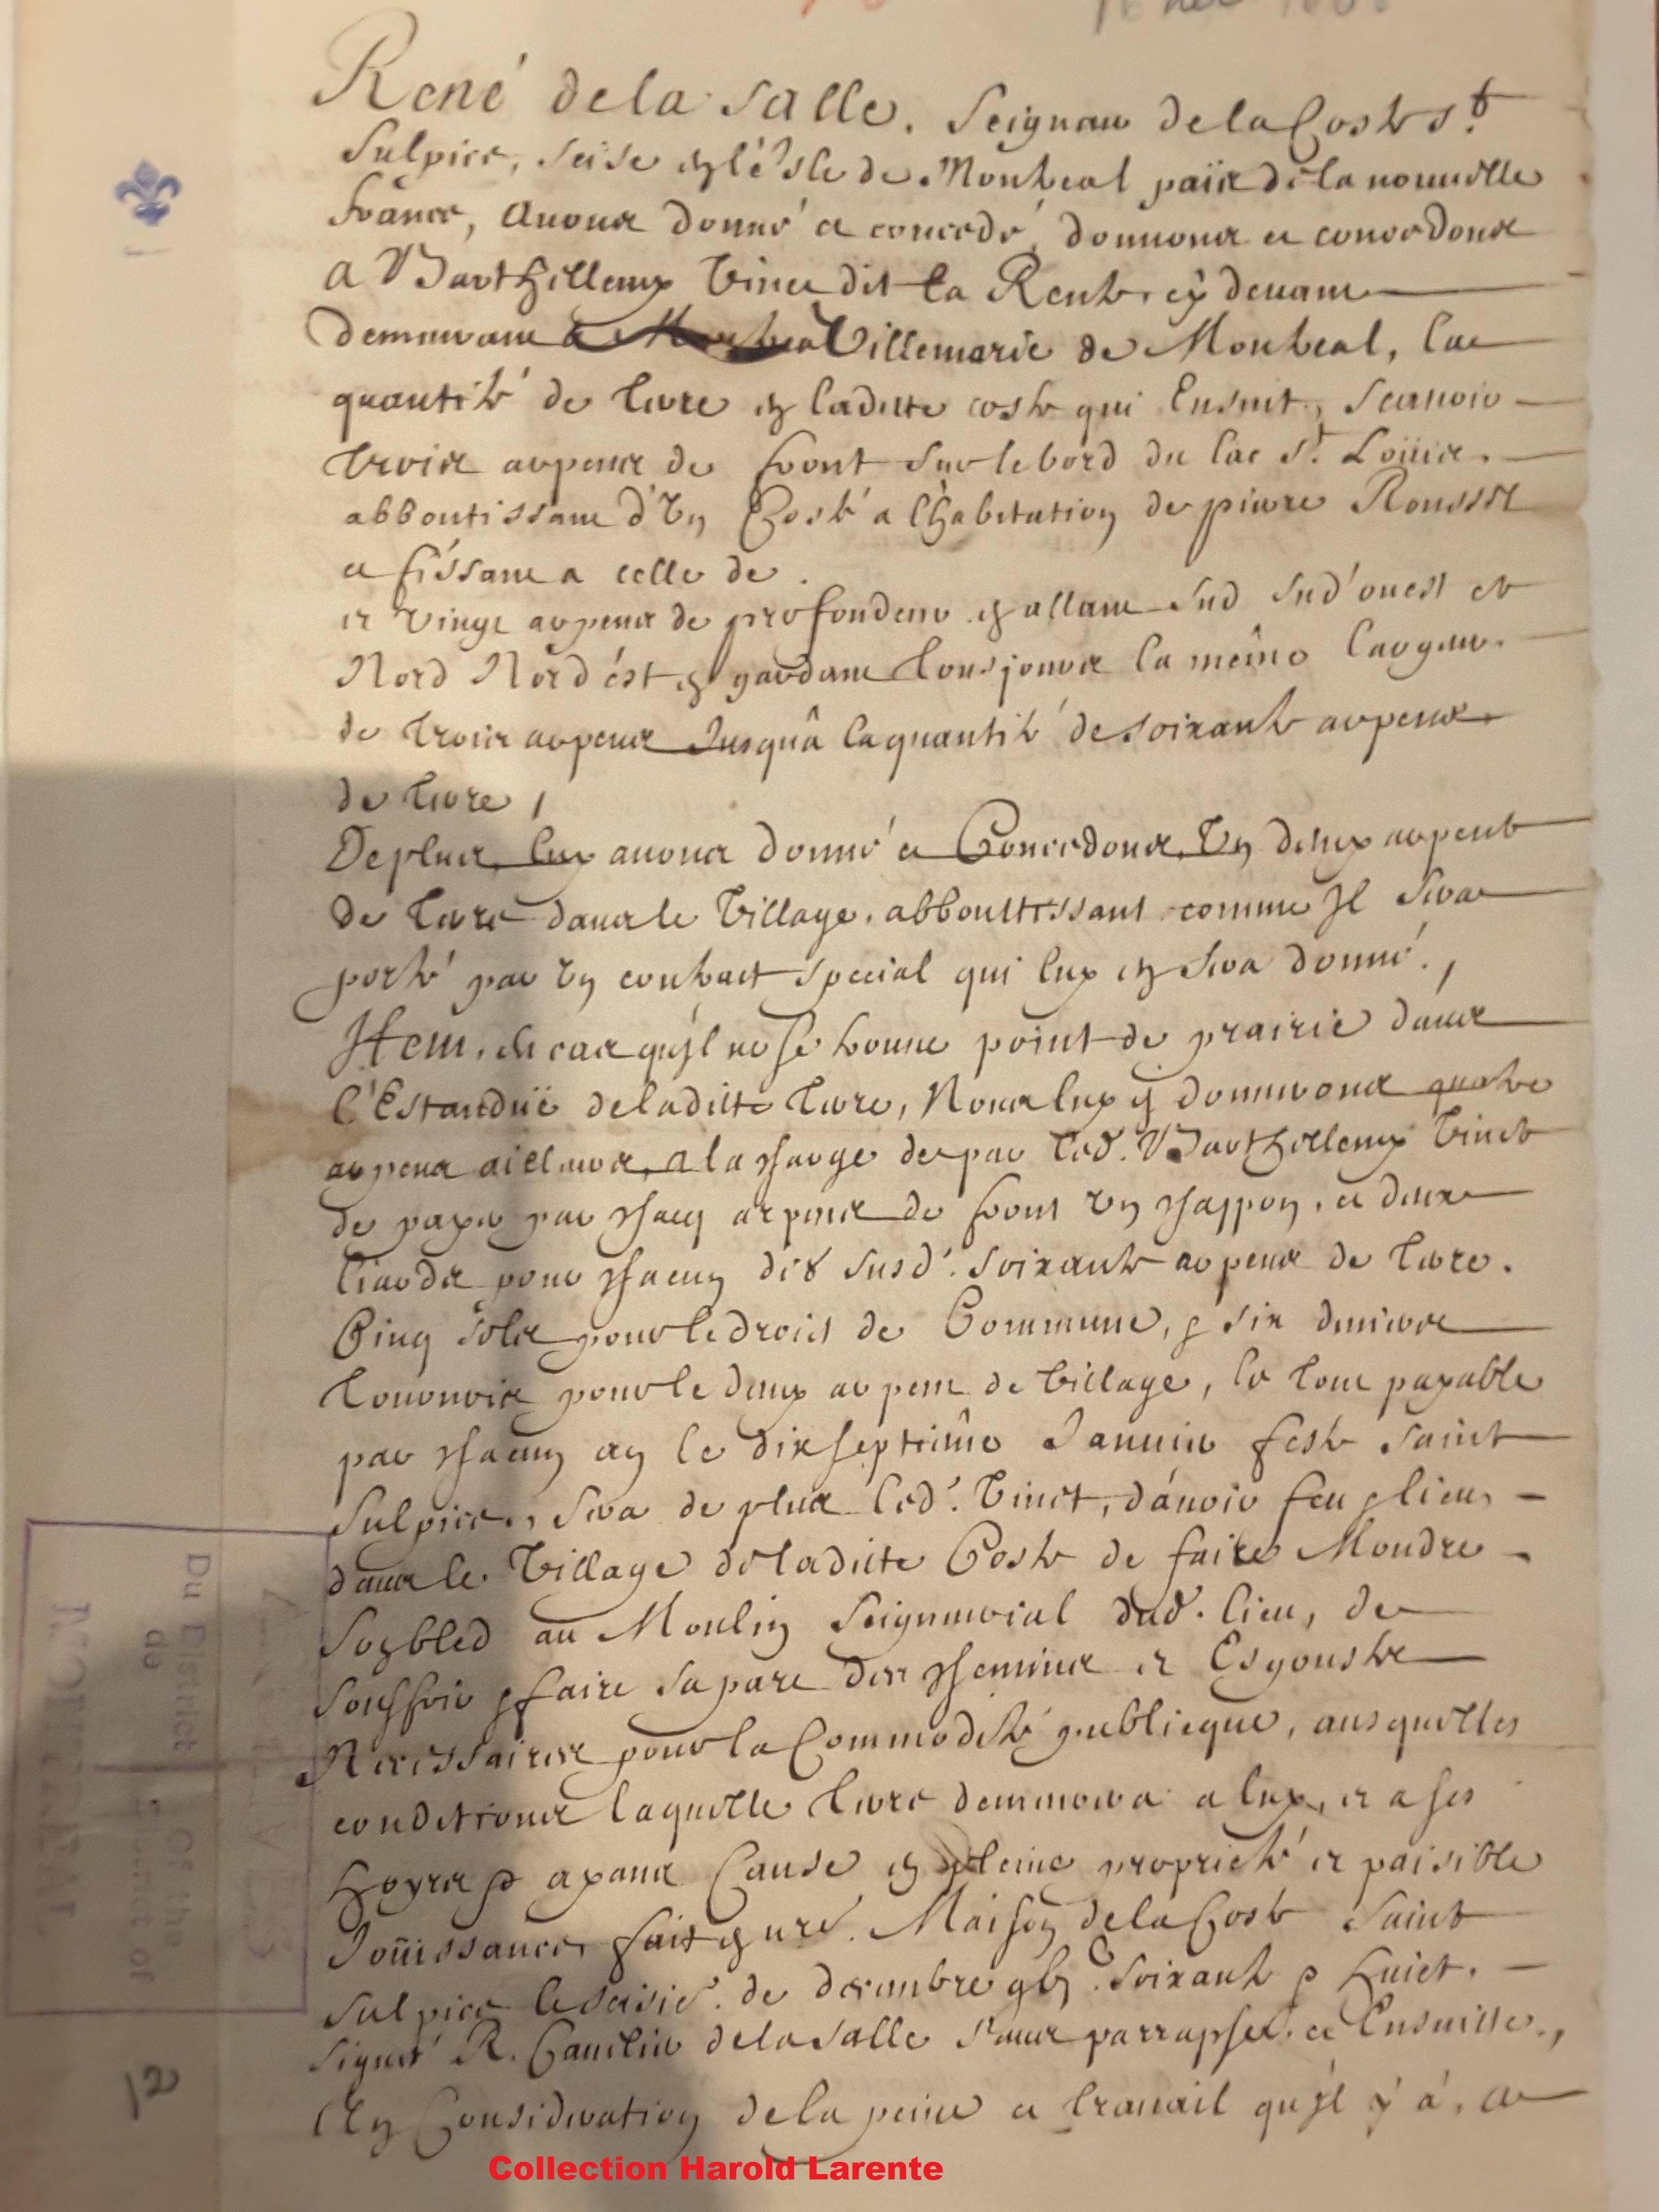 René de la Salle. Seigneur de la Coste St.
Sulpice, scise en l'isle de Montreal païs de la nouvelle
france, Avons donné et concedé, donnons et concedons
A Barthillemy Vinet dit La Rente, cy devant
demeurant a Montreal Villemarie de Montreal, La
quantité de terre en laditte coste qui Ensuit, scavoir
trois arpens de front sur le bord du lac St. Loüis,
abboutissant d'un Costé a l'habitation de pierre Roussel
et finissant a celle de
et vingt arpens de profondeur en allant sud sud'ouest et
Nord Nord'est en gardant tousjours la même largeur
de trois arpens Jusqu'a la quantité de soixante arpens
de terre,
De plus, luy avons donné et Concedons, Un demy arpent
de terre dans le Village, abbouttissant comme Il sera
porté par un contract special qui luy en sera donné,
Item, en cas qu'il ne se trouve point de prairie dans
l'Estanduë de laditte terre, Nous luy en donnerons quatre
arpens ailleurs, a la charge de par led. Barthillemy Vinet
de payer par chacun arpens de front un chappon, et deux
liards pour chacun des susd. soixante arpens de terre.
Cinq sols pour le droict de Commune, & six deniers
tournois pour le demy arpent de Village, le tout payable
par chacun an le dixseptiême Janvier feste Saint
Sulpice, sera de plus led. Vinet, d'avoir feu & lieu,
dans le Village de laditte Coste de faire Moudre
son bled au Moulin Seigneurial dud. lieu, de
souffrir & faire sa part des chemins et Esgousts
Necessaires pour la Commodité publicque, ausquelles
conditions laquelle terre demeurera a luy, et a ses
hoyrs & ayans Cause en pleine proprieté et paisible
Joüissance, fait en nre. Maison de la Coste Saint
Sulpice le seisie. de decembre gbj C. soixante & huict,
signé R. Cavelier de la Salle sans parraphe, et Ensuitte,
En Consideration de la peine et travail qu'il y a, a
Du District de
MONTREAL
Of the District of
12
Collection Harold Larente